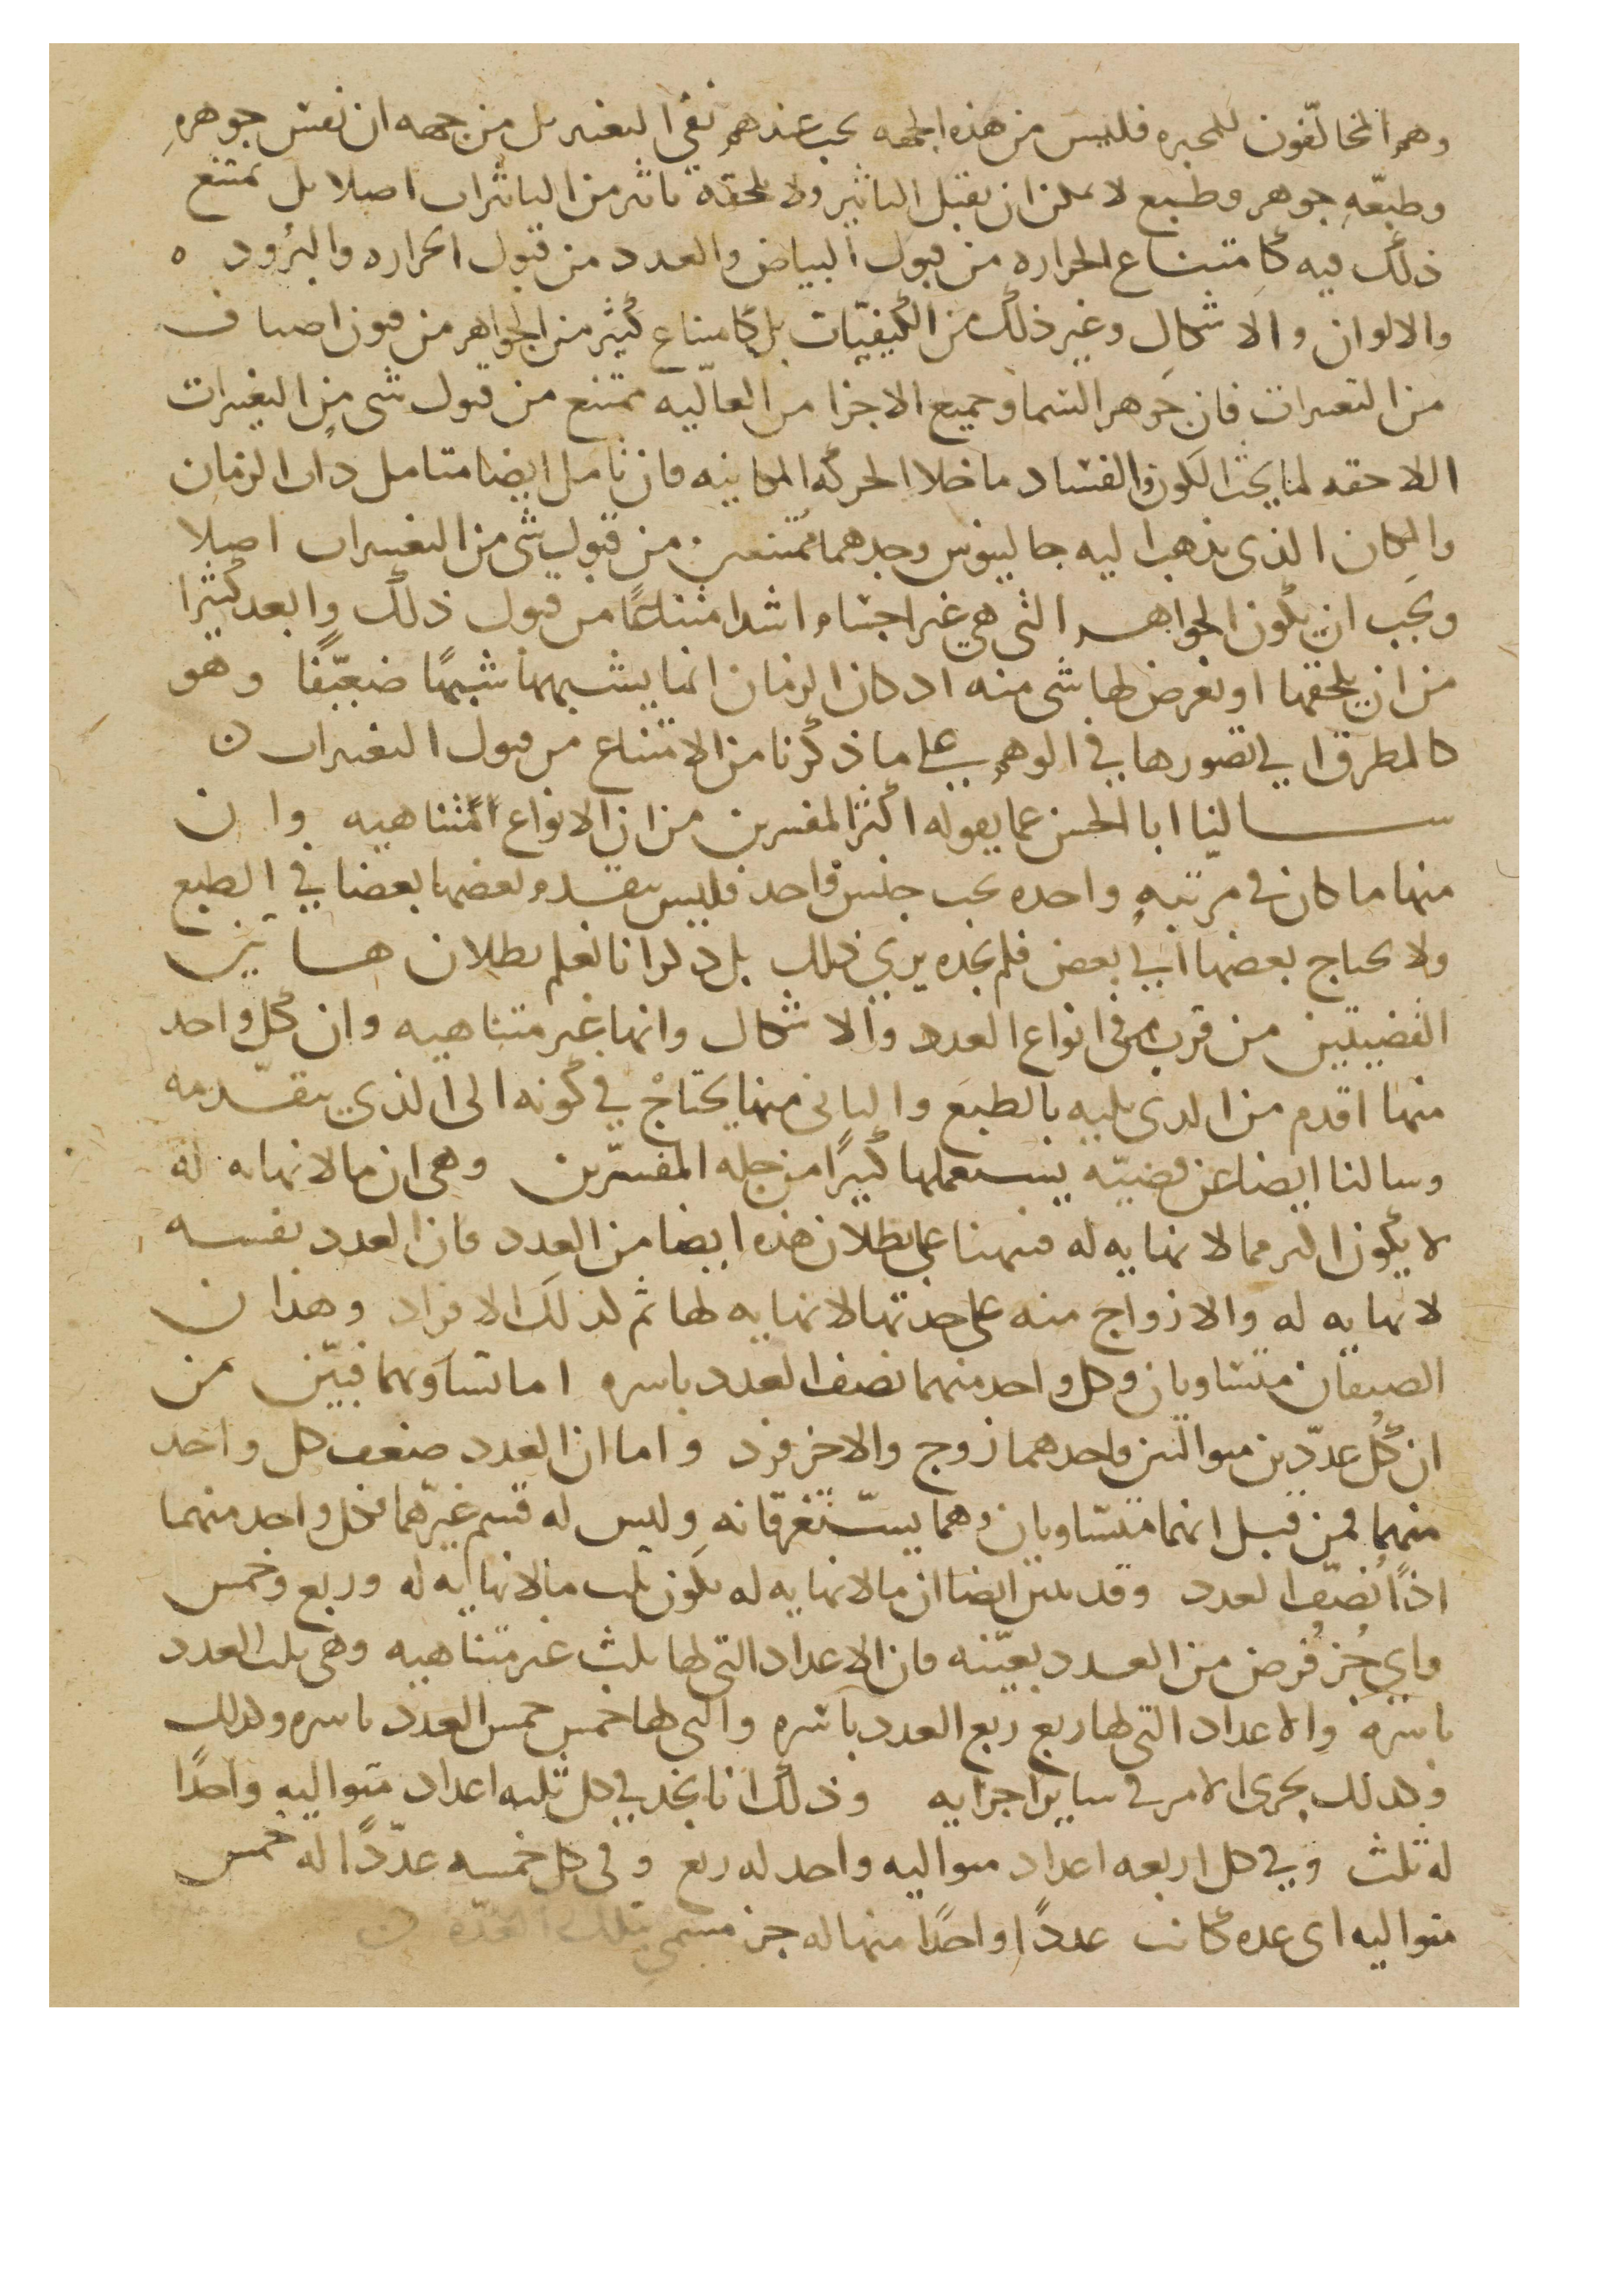 وهم المخالفون للمجبره فليس من هذه الجهه يجب عندهم نفي التغير بل من جهه ان نفس جوهره
وطبعه جوهر وطبع لا يمكن ان يقبل التاثير ولا يلحقه تاثير من التاثيرات اصلا بل يمتنع
ذلك فيه كامتناع الحراره من قبول البياض والعدد من قبول الحراره والبرود ه
والالوان والاشكال وغير ذلك من الكيفيات بل كامتناع كثير من الجواهر من اصناف
من التغيرات فان جوهر السما وجميع الاجزا من العاليه ممتنع من قبول شي من التغيرات
اللاحقه لما يحت الكون والفساد ما خلا الحركه المكانيه فان تامل ايضا متامل ذات الزمان
والمكان الذي يذهب اليه جالينوس وجدهما ممتنعين من قبول شي من التغييرات اصلا
ويجب ان يكون الجواهر التي هي غير اجسام اشد امتناعًا من قبول ذلك وابعد كثيرا
من ان يلحقها او يعرض لها شي منه اذ كان الزمان انما يشبهها شبهًا ضعيفًا وهو
كالمطرق الي تصورها في الوهم علي ما ذكرنا من الامتناع من قبول التغيرات ن
سالنا ابا الحسن عما يقوله اكثر المفسرين من ان الانواع متناهيه وان
منها ما كان في مرتبه واحده تحت جنس واحد فليس يتقدم بعضها بعضا في الطبع
ولا يحتاج بعضها الي بعض فلم نجده يري ذلك بل ذكر انا نعلم بطلان هاتين
القضيتين من قرب في انواع العدد والاشكال وانها غير متناهيه وان كل واحد
منها اقدم من الذي يليه بالطبع والثاني منها يحتاج في كونه الى الذي يتقدمه
وسالنا ايضا عن قضيه يستعملها كثيرًا من جله المفسرين وهي ان ما لا نهايه له
لا يكون اكثر مما لا نهايه له فنبهنا على بطلان هذه ايضا من العدد فان العدد نفسه
لا نهايه له والازواج منه على حدتها لا نهايه لها ثم كذلك الافراد وهذان
الصنفان متساويان وكل واحد منهما نصف العدد باسره اما تساويهما فبين من
ان كل عددين متواليين واحدهما زوج والاخر فرد واما ان العدد ضعف كل واحد
منهما فمن قبل انهما متساويان وهما يستغرقانه وليس له قسم غيرهما فكل واحد منهما
اذًا نصف العدد وقد تبين ايضا ان ما لا نهايه له يكون ثلث ما لا نهايه له وربع وخمس
واي جز فرض من العدد بعينه فان الاعداد التي لها ثلث غير متناهيه وهي ثلث العدد
باسره والاعداد التي لها ربع ربع العدد باسره والتي لها خمس خمس العدد باسره وكذلك
وكذلك يجري الامر في ساير اجزايه وذلك انا نجد في كل ثلثه اعداد متواليه واحدًا
له ثلث وفي كل اربعه اعداد متواليه واحد له ربع وفي كل خمسه عددًا له خمس
متواليه اى عده كانت عددًا واحدًا منها له جز مسمي بتلك العدّه ن